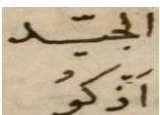 الجيّد
اَذْكُو